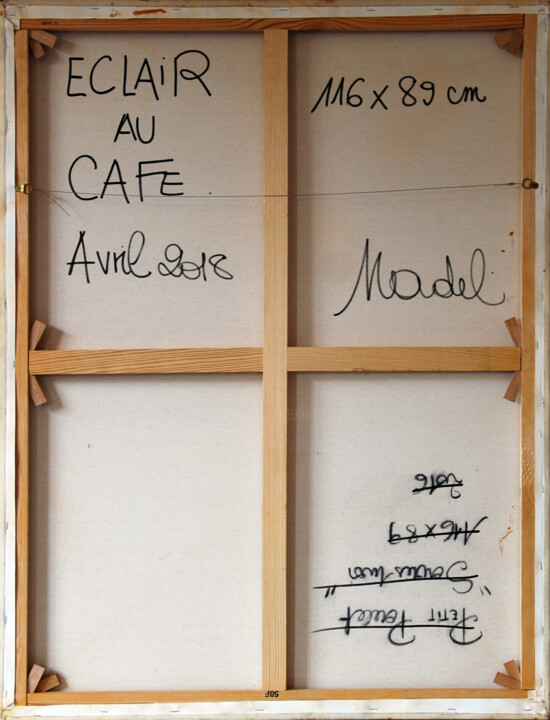 ECLAIR
AU
CAFE
Avril 2018
116 x 89 cm
Madel
PETIT Poulet
116 x 89
2016
50F